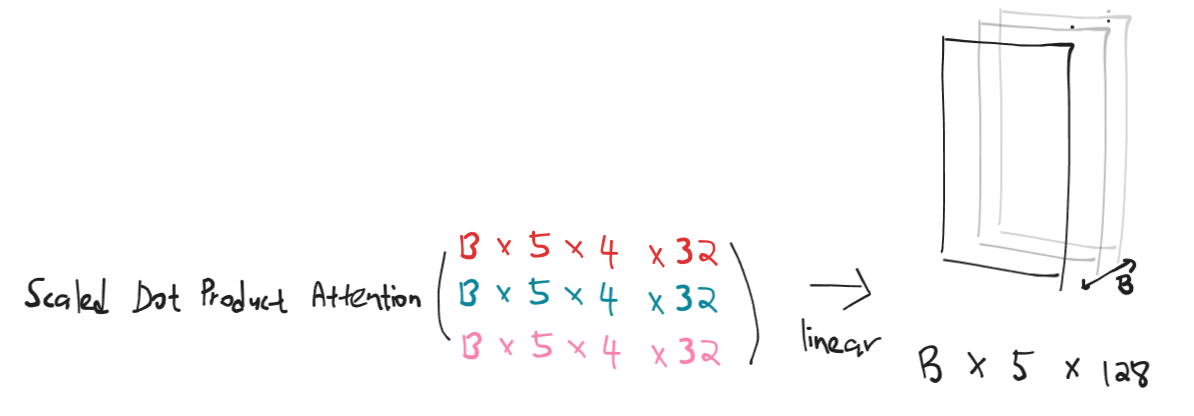 B × 5 × 4 × 32
Scaled Dot Product Attention ( B × 5 × 4 × 32 ) →
B × 5 × 4 × 32
linear
B
B × 5 × 128